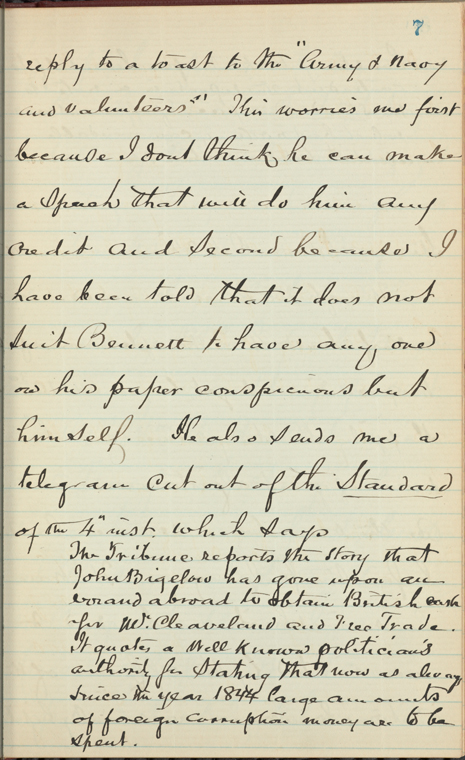 7
reply to a toast to the "Army & Navy
and volunteers" This worries me first
because I dont think he can make
a speech that will do him any
credit and second because I
have been told that it does not
suit Bennett to have any one
on his paper conspicuous but
himself. He also sends me a
telegram cut out of the Standard
of the 4" inst. which says
The Tribune reports the story that
John Bigelow has gone upon an
errand abroad to obtain British cash
for Mr. Cleaveland and Free Trade.
It quotes a well known politician's
authority for stating that now as always
since the year 1844 large amounts
of foreign corruption money are to be
spent.